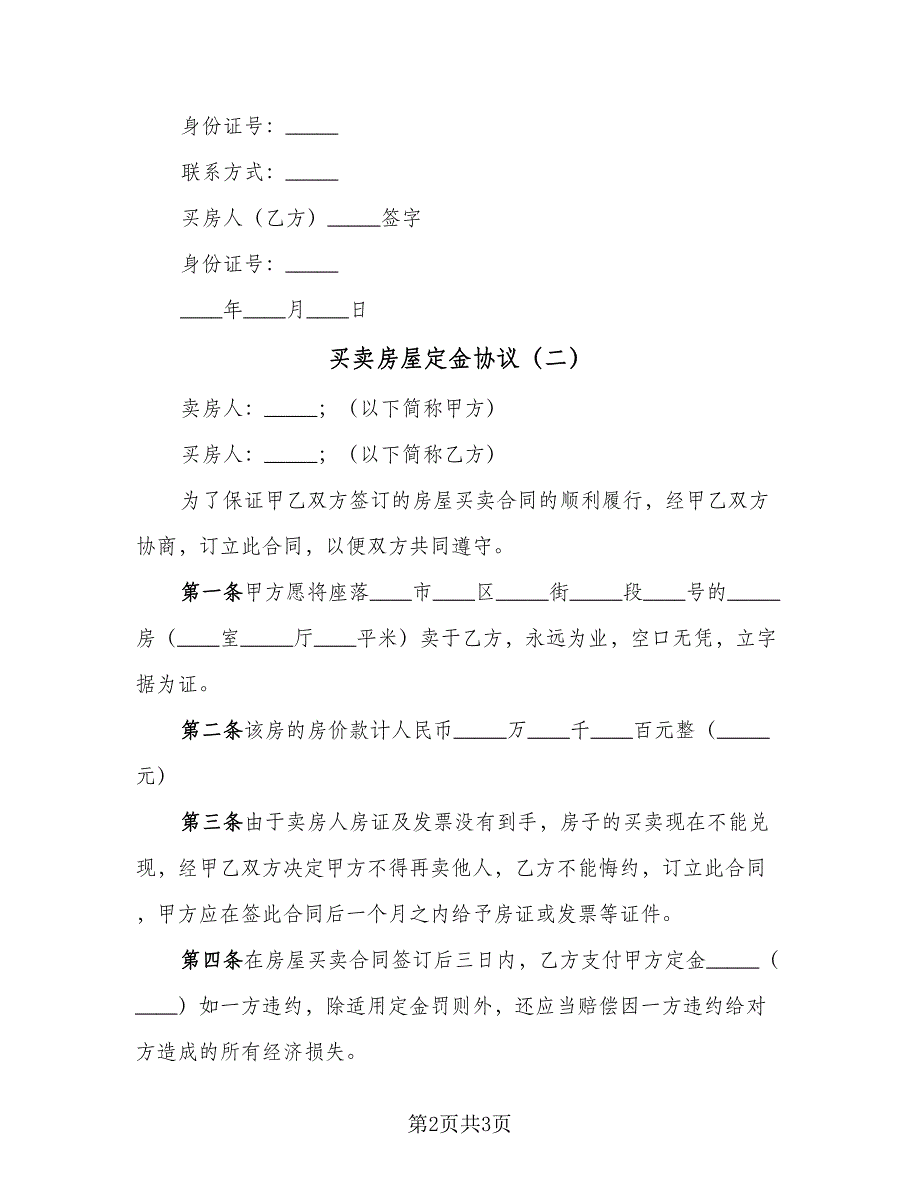 身份证号：_____
联系方式：_____
买房人（乙方）_____签字
身份证号：_____
____年____月____日
买卖房屋定金协议（二）
卖房人：_____；（以下简称甲方）
买房人：_____；（以下简称乙方）
为了保证甲乙双方签订的房屋买卖合同的顺利履行，经甲乙双方
协商，订立此合同，以便双方共同遵守。
第一条甲方愿将座落____市____区_____街_____段____号的_____
房（____室_____厅____平米）卖于乙方，永远为业，空口无凭，立字
据为证。
第二条该房的房价款计人民币_____万____千____百元整（_____
元）
第三条由于卖房人房证及发票没有到手，房子的买卖现在不能兑
现，经甲乙双方决定甲方不得再卖他人，乙方不能悔约，订立此合同
，甲方应在签此合同后一个月之内给予房证或发票等证件。
第四条在房屋买卖合同签订后三日内，乙方支付甲方定金_____（
____）如一方违约，除适用定金罚则外，还应当赔偿因一方违约给对
方造成的所有经济损失。
第2页共3页